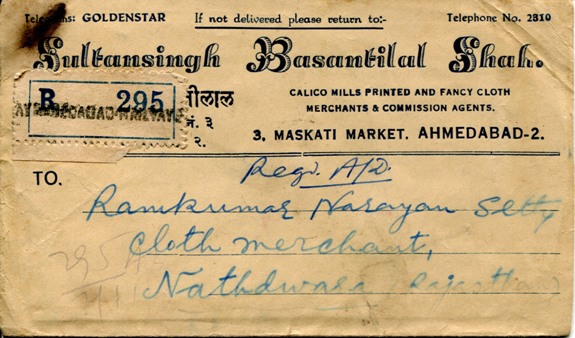 Telegrams: GOLDENSTAR If not delivered please return to:- Telephone No. 2310
Sultansingh Basantilal Shah.
R 295
AHMEDABAD RAILWAY
ीलाल
नं. ३
२.
CALICO MILLS PRINTED AND FANCY CLOTH
MERCHANTS & COMMISSION AGENTS.
3, MASKATI MARKET, AHMEDABAD-2.
Regd. A/D.
TO.
Ramkumar Narayan Setty
Cloth merchant,
295
Nathdwara (Rajasthan)